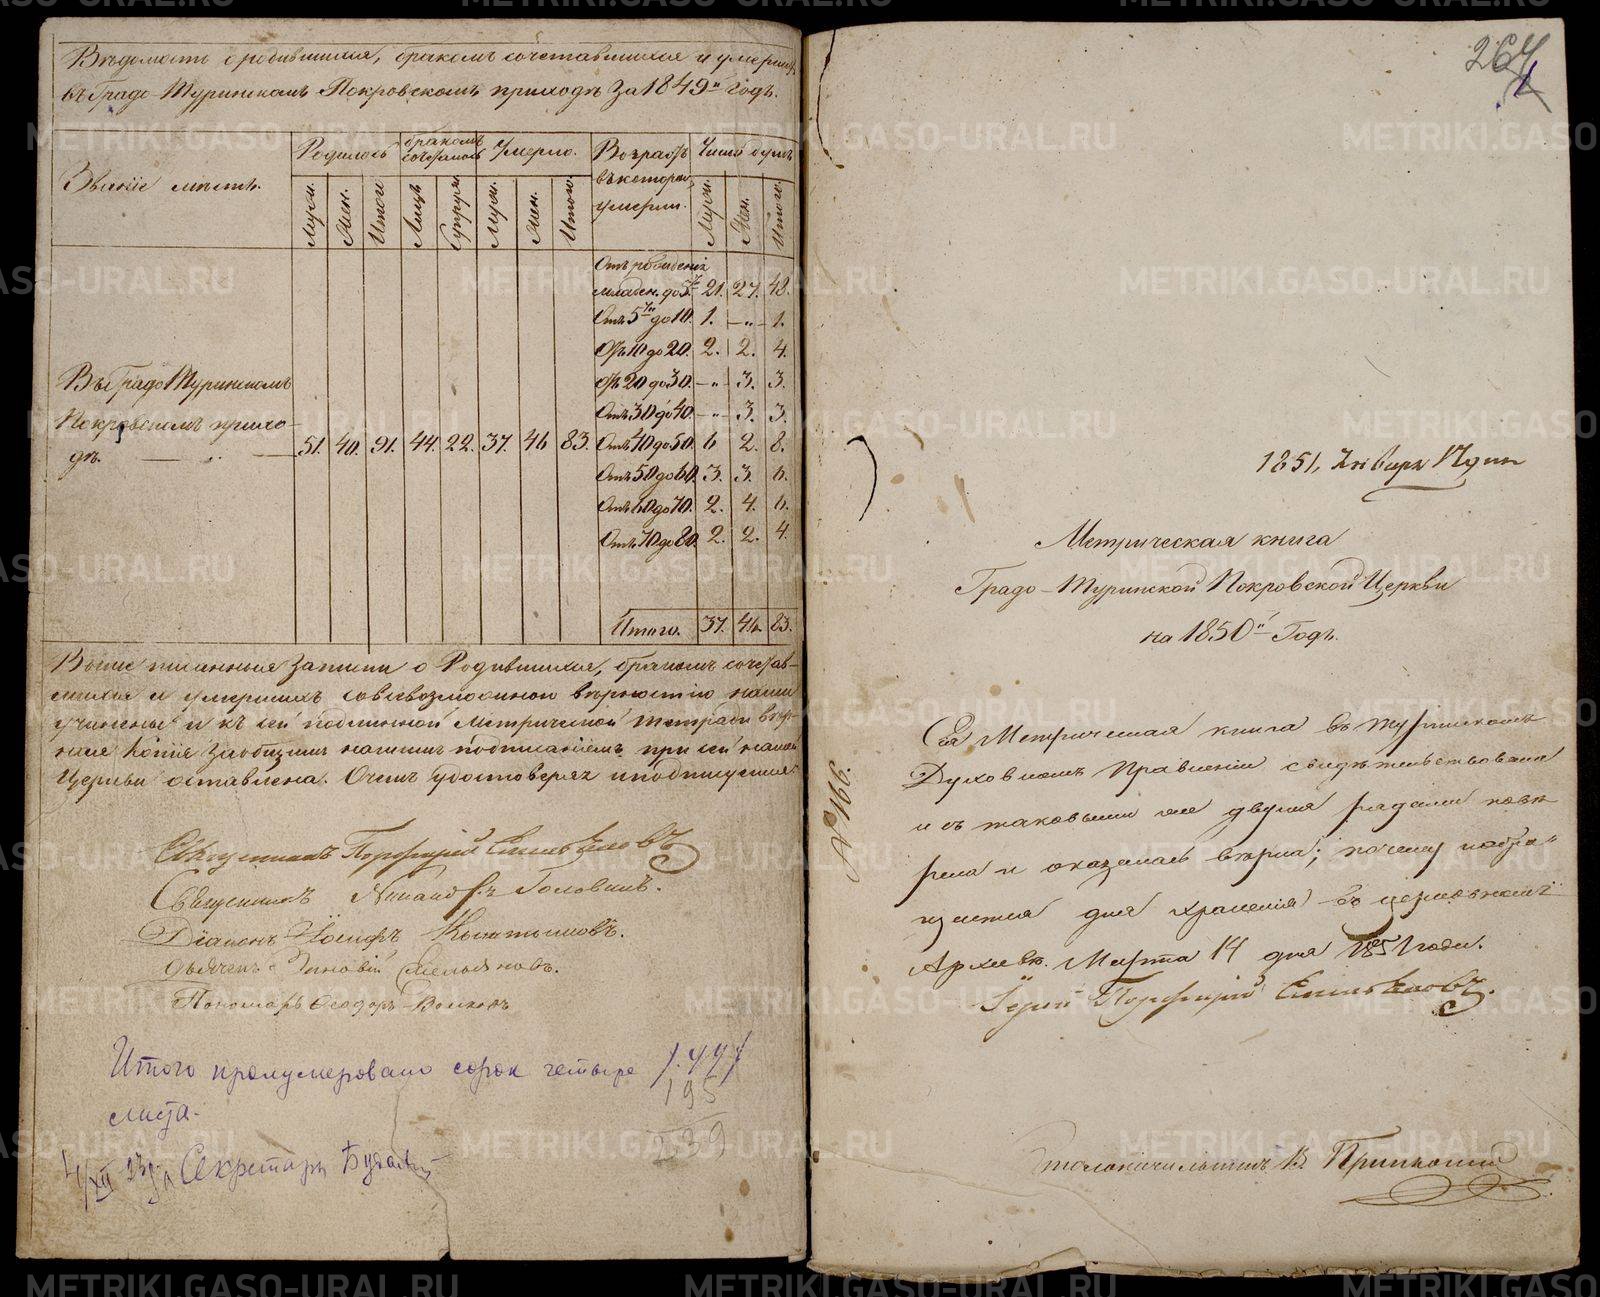 Ведомость о родившихся, бракомъ сочетавшихся и умерших
въ Градо-Туринскомъ Покровскомъ приходѣ за 1849й годъ.
Званіе мѣстъ.
Родилось
бракомъ сочетались
Умерло.
Возрастъ въ котором умерли.
Число душъ
Муж. Жен. Итого Лицъ Супруж. Муж. Жен. Итого. Муж. Жен. Итого
Отъ рожденія
младен. до 5ти 21. 27. 48.
Отъ 5ти до 10. 1. —"— 1.
Отъ 10 до 20. 2. 2. 4.
Отъ 20 до 30. —"— 3. 3.
Отъ 30 до 40. —"— 3. 3.
Въ Градо Туринскомъ
Покровскомъ прихо-
дѣ. 51. 40. 91. 44. 22. 37. 46 83. Отъ 40 до 50. 6 2. 8.
Отъ 50 до 60. 3. 3. 6.
Отъ 60 до 70. 2. 4. 6.
Отъ 70 до 80. 2. 2. 4.
Итого. 37. 46. 83.
Выше писанныя записи о Родившихся, бракомъ сочетав-
шихся и умершихъ со всевозможною вѣрностію нами
учинены и къ сей подлинной метрической тетради вѣр-
ная копія за общимъ нашимъ подписаніемъ при сей нашей
Церкви оставлена. О чемъ удостоверяя и подпишемся
Священникъ Порфирій
Священникъ Головинъ.
Діаконъ Іосифъ
Дьячекъ Зиновій
Пономарь Феодоръ Волковъ
Итого пронумеровано сорок четыре /.44/
листа. 195
239
4/XII 23 г. Секретарь
264
1
1851, Января 17 дня
Метрическая книга
Градо-Туринской Покровской Церкви
на 1850й Годъ.
№ 166.
Сія Метрическая книга въ Туринскомъ
Духовномъ Правленіи свидѣтельствована
и съ таковыми же двумя рядами повѣ
рена и оказалась вѣрна; почему и
для храненія въ церковномъ
Архивѣ. Марта 14 дня 1851 года.
Іерей Порфирій
Столоначальникъ В.
METRIKI.GASO-URAL.RU